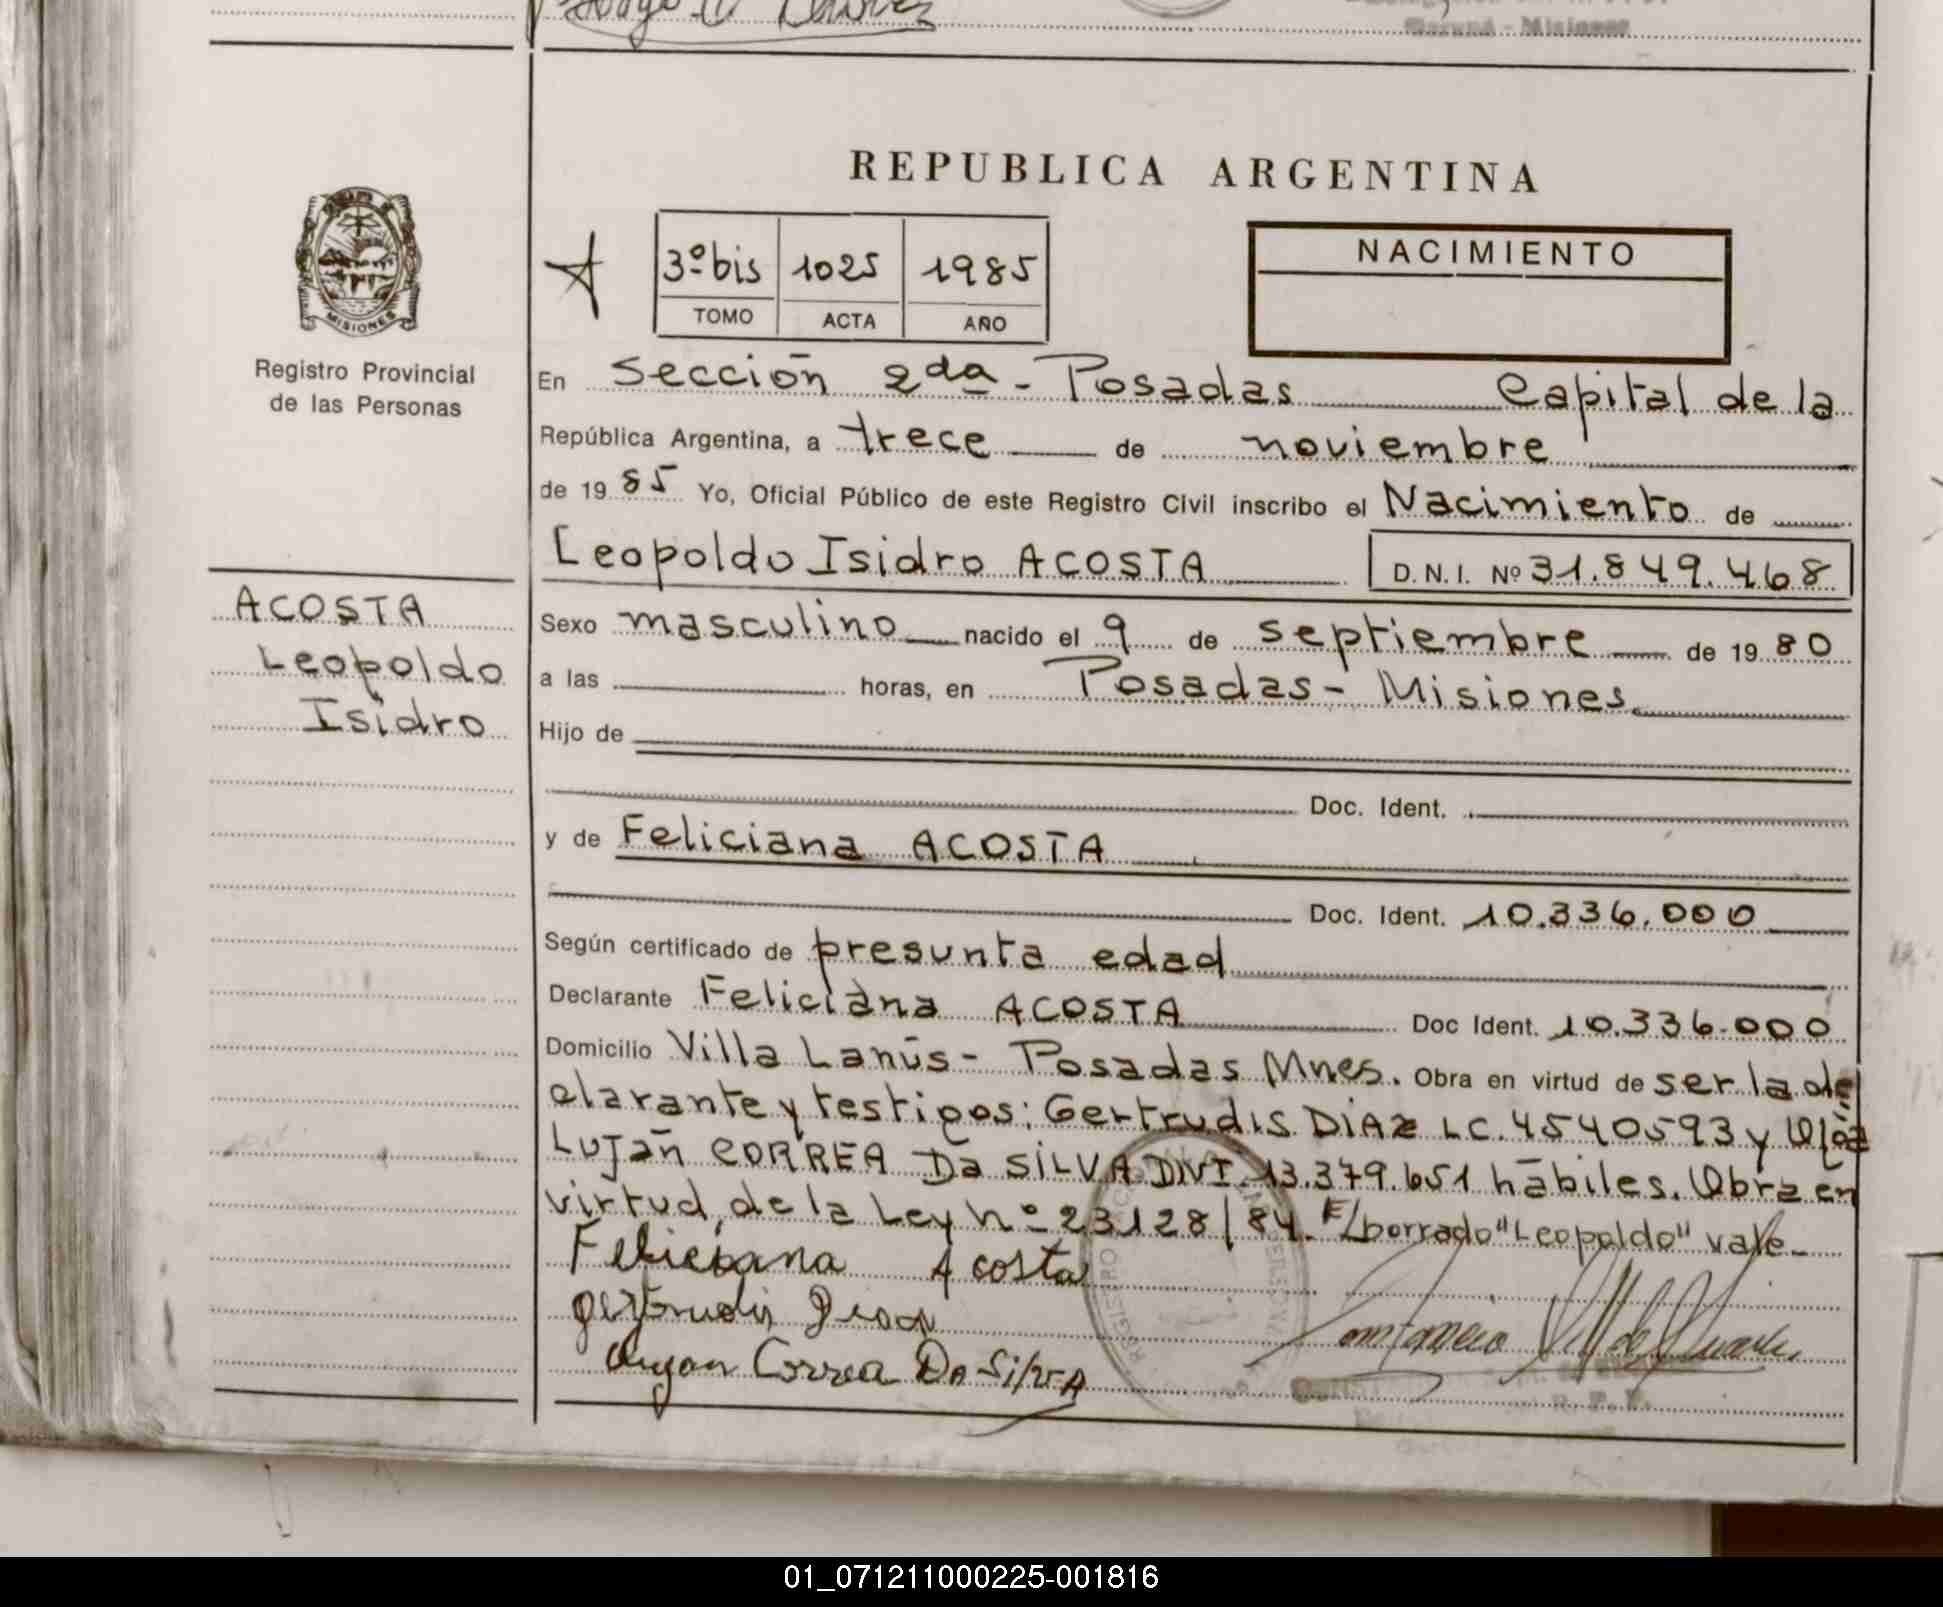 Garupá - Misiones
REPUBLICA ARGENTINA
3º bis 1025 1985
TOMO ACTA AÑO
NACIMIENTO
MISIONES
Registro Provincial
de las Personas
En Sección 2da - Posadas Capital de la
República Argentina, a trece de noviembre
de 19 85 Yo, Oficial Público de este Registro Civil inscribo el Nacimiento de
Leopoldo Isidro ACOSTA D.N.I. Nº 31.849.468
ACOSTA
Leopoldo
Isidro
Sexo masculino nacido el 9 de septiembre de 19 80
a las horas, en Posadas - Misiones.
Hijo de
Doc. Ident.
y de Feliciana ACOSTA
Doc. Ident. 10.336.000
Según certificado de presunta edad
Declarante Feliciana ACOSTA Doc Ident. 10.336.000
Domicilio Villa Lanús - Posadas Mnes. Obra en virtud de ser la de
clarante y testigos: Gertrudis DIAZ LC. 4540593 y
Luján CORREA Da SILVA DNI. 13.379.651 hábiles. Obra en
virtud de la Ley nº 23128/84. E/borrado "Leopoldo" vale-
Feliciana Acosta
gertrudis
Correa Da SilvA
REGISTRO
01_071211000225-001816